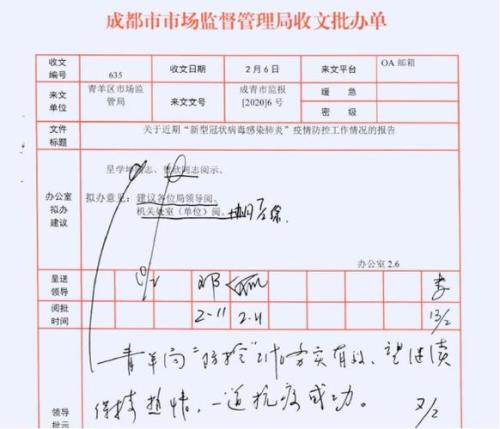 成都市市场监督管理局收文批办单
收文编号 635 收文日期 2月6日 来文平台 OA 邮箱
来文单位 青羊区市场监管局 来文文号 成青市监报[2020]6号 缓急
密级
文件标题 关于近期“新型冠状病毒感染肺炎”疫情防控工作情况的报告
办公室拟办建议
同志阅示。
拟办意见：建议各位局领导阅。
机关处室（单位）阅。
办公室 2.6
呈送领导 邓 李
阅批时间 2-11 2.11 13/2
青羊局“防控”工作务实有效、望继续
保持热情、一道抗疫成功。
领导批示